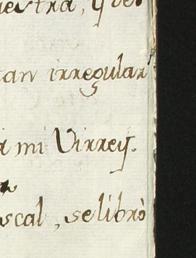 uestra, q de
tan irregular
a mi Virrey.
scal, se libró